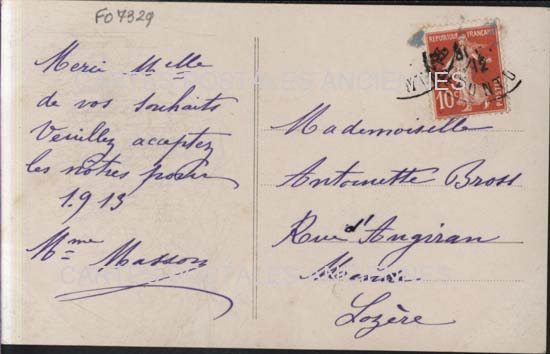 FO 7329
Merci Mlle
de vos souhaits
Veuillez acceptez
les nôtres pour
1913
Mme Masson
REPUBLIQUE FRANÇAISE
10c
POSTES
Mademoiselle
Antoinette Bross
Rue d'Angiran
Mende
Lozère
CARTES POSTALES ANCIENNES
CARTES POSTALES ANCIENNES